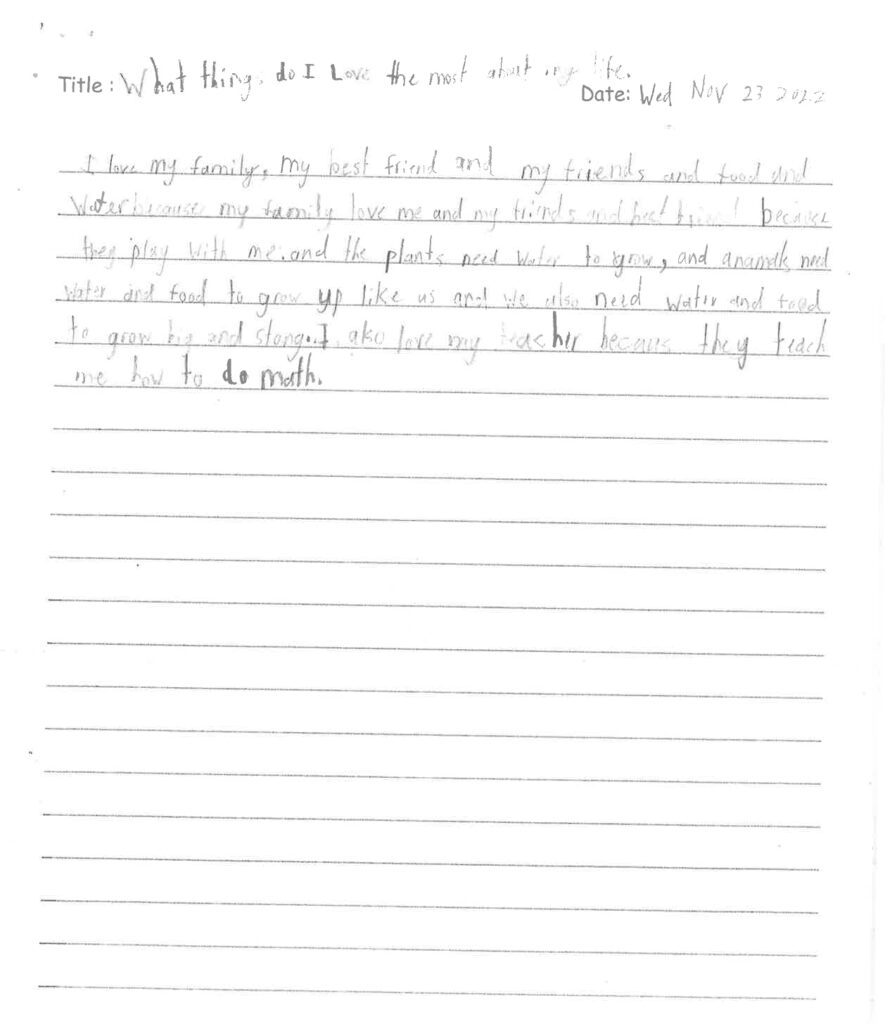 Title : What things do I Love the most about my life.
Date: Wed Nov 23 2022
I love my family, my best friend and my friends and food and
Water because my family love me and my friends and best friend because
they play with me. and the plants need water to grow, and anamals need
water and food to grow up like us and we also need water and food
to grow big and stong. I also love my teacher becaus they teach
me how to do math.